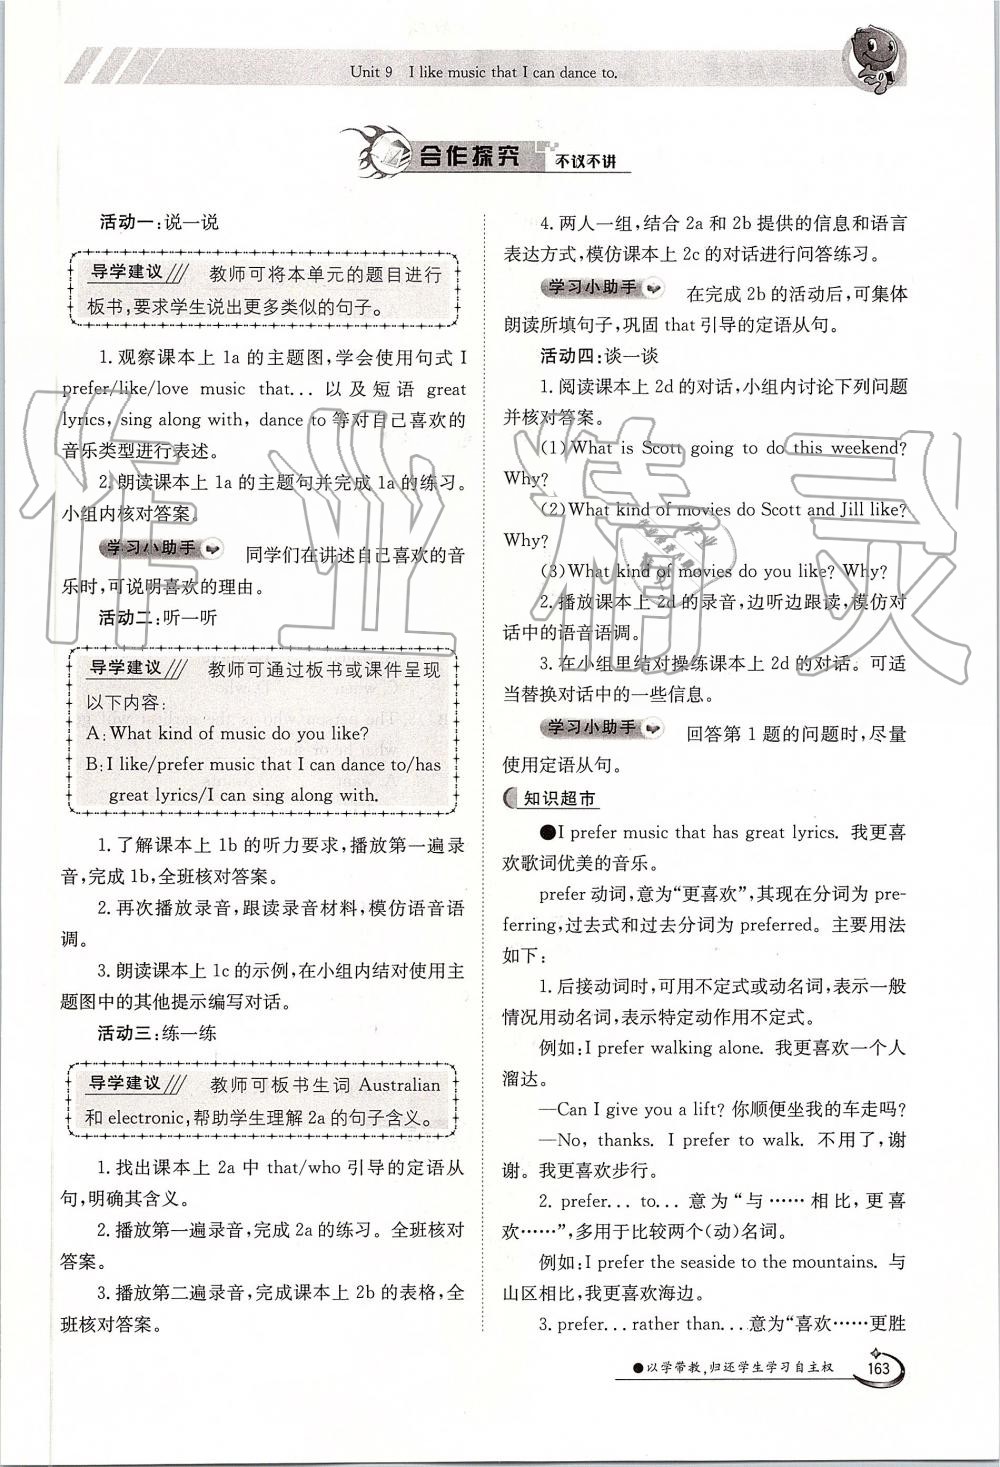 Unit 9 I like music that I can dance to.
合作探究 不议不讲
活动一:说一说
导学建议 教师可将本单元的题目进行
板书,要求学生说出更多类似的句子。
1. 观察课本上 1a 的主题图,学会使用句式 I
prefer/like/love music that... 以及短语 great
lyrics, sing along with, dance to 等对自己喜欢的
音乐类型进行表述。
2. 朗读课本上 1a 的主题句并完成 1a 的练习。
小组内核对答案。
学习小助手 同学们在讲述自己喜欢的音
乐时,可说明喜欢的理由。
活动二:听一听
导学建议 教师可通过板书或课件呈现
以下内容:
A: What kind of music do you like?
B: I like/prefer music that I can dance to/has
great lyrics/I can sing along with.
1. 了解课本上 1b 的听力要求,播放第一遍录
音,完成 1b,全班核对答案。
2. 再次播放录音,跟读录音材料,模仿语音语
调。
3. 朗读课本上 1c 的示例,在小组内结对使用主
题图中的其他提示编写对话。
活动三:练一练
导学建议 教师可板书生词 Australian
和 electronic,帮助学生理解 2a 的句子含义。
1. 找出课本上 2a 中 that/who 引导的定语从
句,明确其含义。
2. 播放第一遍录音,完成 2a 的练习。全班核对
答案。
3. 播放第二遍录音,完成课本上 2b 的表格,全
班核对答案。
4. 两人一组,结合 2a 和 2b 提供的信息和语言
表达方式,模仿课本上 2c 的对话进行问答练习。
学习小助手 在完成 2b 的活动后,可集体
朗读所填句子,巩固 that 引导的定语从句。
活动四:谈一谈
1. 阅读课本上 2d 的对话,小组内讨论下列问题
并核对答案。
(1) What is Scott going to do this weekend?
Why?
(2) What kind of movies do Scott and Jill like?
Why?
(3) What kind of movies do you like? Why?
2. 播放课本上 2d 的录音,边听边跟读,模仿对
话中的语音语调。
3. 在小组里结对操练课本上 2d 的对话。可适
当替换对话中的一些信息。
学习小助手 回答第 1 题的问题时,尽量
使用定语从句。
知识超市
●I prefer music that has great lyrics. 我更喜
欢歌词优美的音乐。
prefer 动词,意为“更喜欢”,其现在分词为 pre-
ferring,过去式和过去分词为 preferred。主要用法
如下:
1. 后接动词时,可用不定式或动名词,表示一般
情况用动名词,表示特定动作用不定式。
例如:I prefer walking alone. 我更喜欢一个人
溜达。
—Can I give you a lift? 你顺便坐我的车走吗?
—No, thanks. I prefer to walk. 不用了,谢
谢。我更喜欢步行。
2. prefer... to... 意为“与……相比,更喜
欢……”,多用于比较两个(动)名词。
例如:I prefer the seaside to the mountains. 与
山区相比,我更喜欢海边。
3. prefer... rather than... 意为“喜欢……更胜
●以学带教,归还学生学习自主权 163
作业精灵